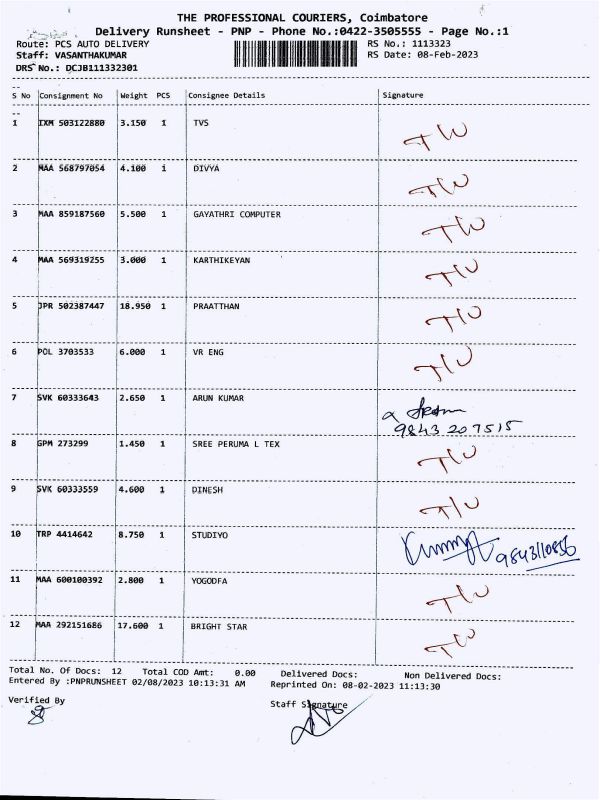 THE PROFESSIONAL COURIERS, Coimbatore
Delivery Runsheet - PNP - Phone No.:0422-3505555 - Page No.:1
Route: PCS AUTO DELIVERY RS No.: 1113323
Staff: VASANTHAKUMAR RS Date: 08-Feb-2023
DRS No.: DCJB111332301
S No Consignment No Weight PCS Consignee Details Signature
1 IXM 503122880 3.150 1 TVS T/W
2 MAA 568797054 4.100 1 DIVYA T/W
3 MAA 859187560 5.500 1 GAYATHRI COMPUTER T/W
4 MAA 569319255 3.000 1 KARTHIKEYAN T/W
5 JPR 502387447 18.950 1 PRAATTHAN T/W
6 POL 3703533 6.000 1 VR ENG T/W
7 SVK 60333643 2.650 1 ARUN KUMAR
9843 207515
8 GPM 273299 1.450 1 SREE PERUMA L TEX T/W
9 SVK 60333559 4.600 1 DINESH T/W
10 TRP 4414642 8.750 1 STUDIYO
11 MAA 600100392 2.800 1 YOGODFA T/W
12 MAA 292151686 17.600 1 BRIGHT STAR T/W
Total No. Of Docs: 12 Total COD Amt: 0.00 Delivered Docs: Non Delivered Docs:
Entered By :PNPRUNSHEET 02/08/2023 10:13:31 AM Reprinted On: 08-02-2023 11:13:30
Verified By Staff Signature